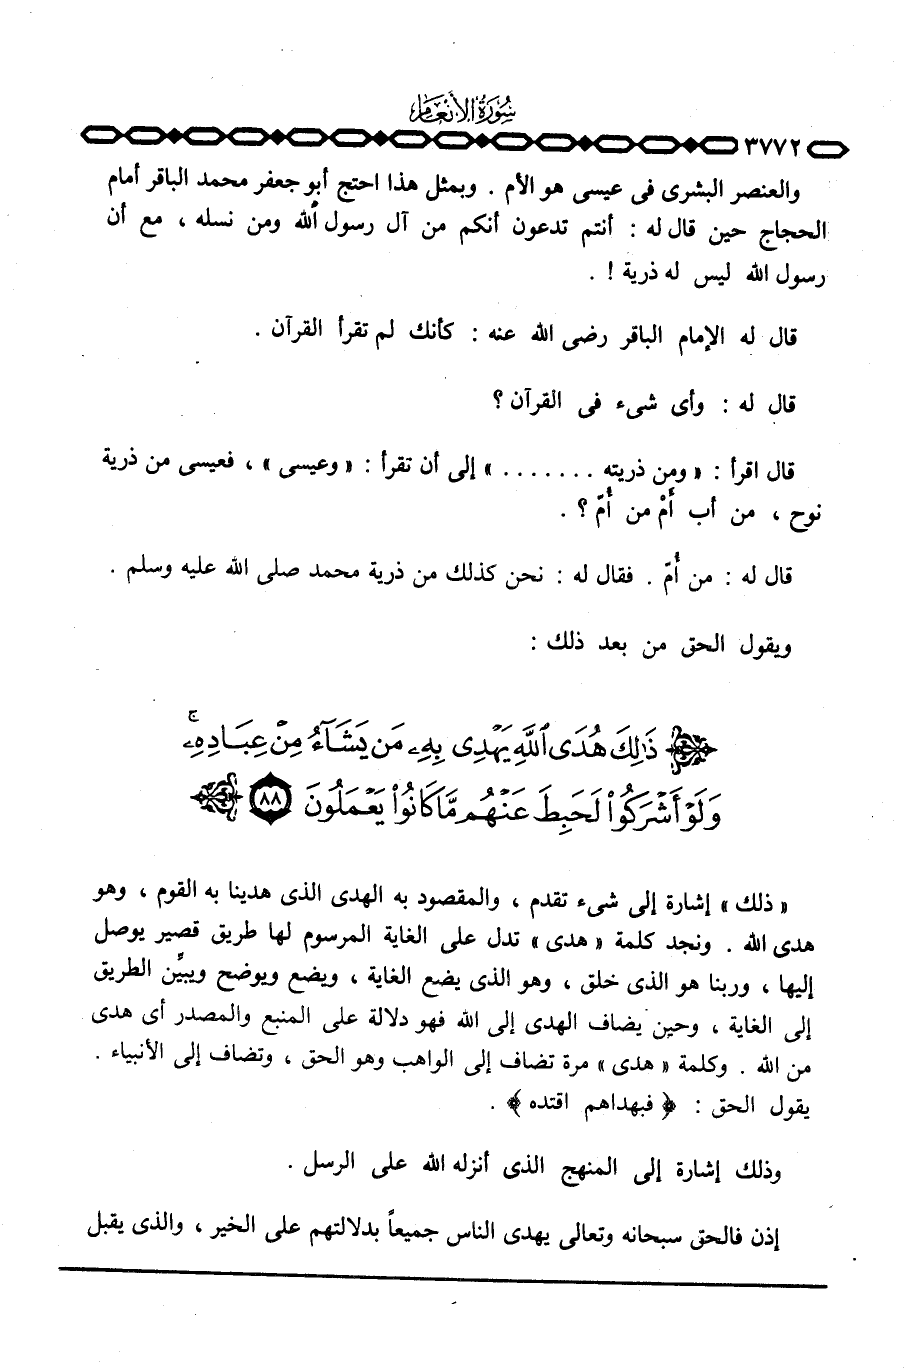 سورة الأنعام
٣٧٧٢
والعنصر البشرى فى عيسى هو الأم . وبمثل هذا احتج أبو جعفر محمد الباقر أمام
الحجاج حين قال له : أنتم تدعون أنكم من آل رسول الله ومن نسله ، مع أن
رسول الله ليس له ذرية ! .
قال له الإمام الباقر رضى الله عنه : كأنك لم تقرأ القرآن .
قال له : وأى شىء فى القرآن ؟
قال اقرأ : « ومن ذريته . . . . . . . » إلى أن تقرأ : « وعيسى » ، فعيسى من ذرية
نوح ، من أب أَمْ من أُمّ ؟ .
قال له : من أُمّ . فقال له : نحن كذلك من ذرية محمد صلى الله عليه وسلم .
ويقول الحق من بعد ذلك :
ذَٰلِكَ هُدَى ٱللَّهِ يَهْدِى بِهِۦ مَن يَشَآءُ مِنْ عِبَادِهِۦۚ
وَلَوْ أَشْرَكُوا۟ لَحَبِطَ عَنْهُم مَّا كَانُوا۟ يَعْمَلُونَ ٨٨
« ذلك » إشارة إلى شىء تقدم ، والمقصود به الهدى الذى هدينا به القوم ، وهو
هدى الله . ونجد كلمة « هدى » تدل على الغاية المرسوم لها طريق قصير يوصل
إليها ، وربنا هو الذى خلق ، وهو الذى يضع الغاية ، ويضع ويوضح ويبيِّن الطريق
إلى الغاية ، وحين يضاف الهدى إلى الله فهو دلالة على المنبع والمصدر أى هدى
من الله . وكلمة « هدى » مرة تضاف إلى الواهب وهو الحق ، وتضاف إلى الأنبياء .
يقول الحق : ﴿ فبهداهم اقتده ﴾ .
وذلك إشارة إلى المنهج الذى أنزله الله على الرسل .
إذن فالحق سبحانه وتعالى يهدى الناس جميعاً بدلالتهم على الخير ، والذى يقبل